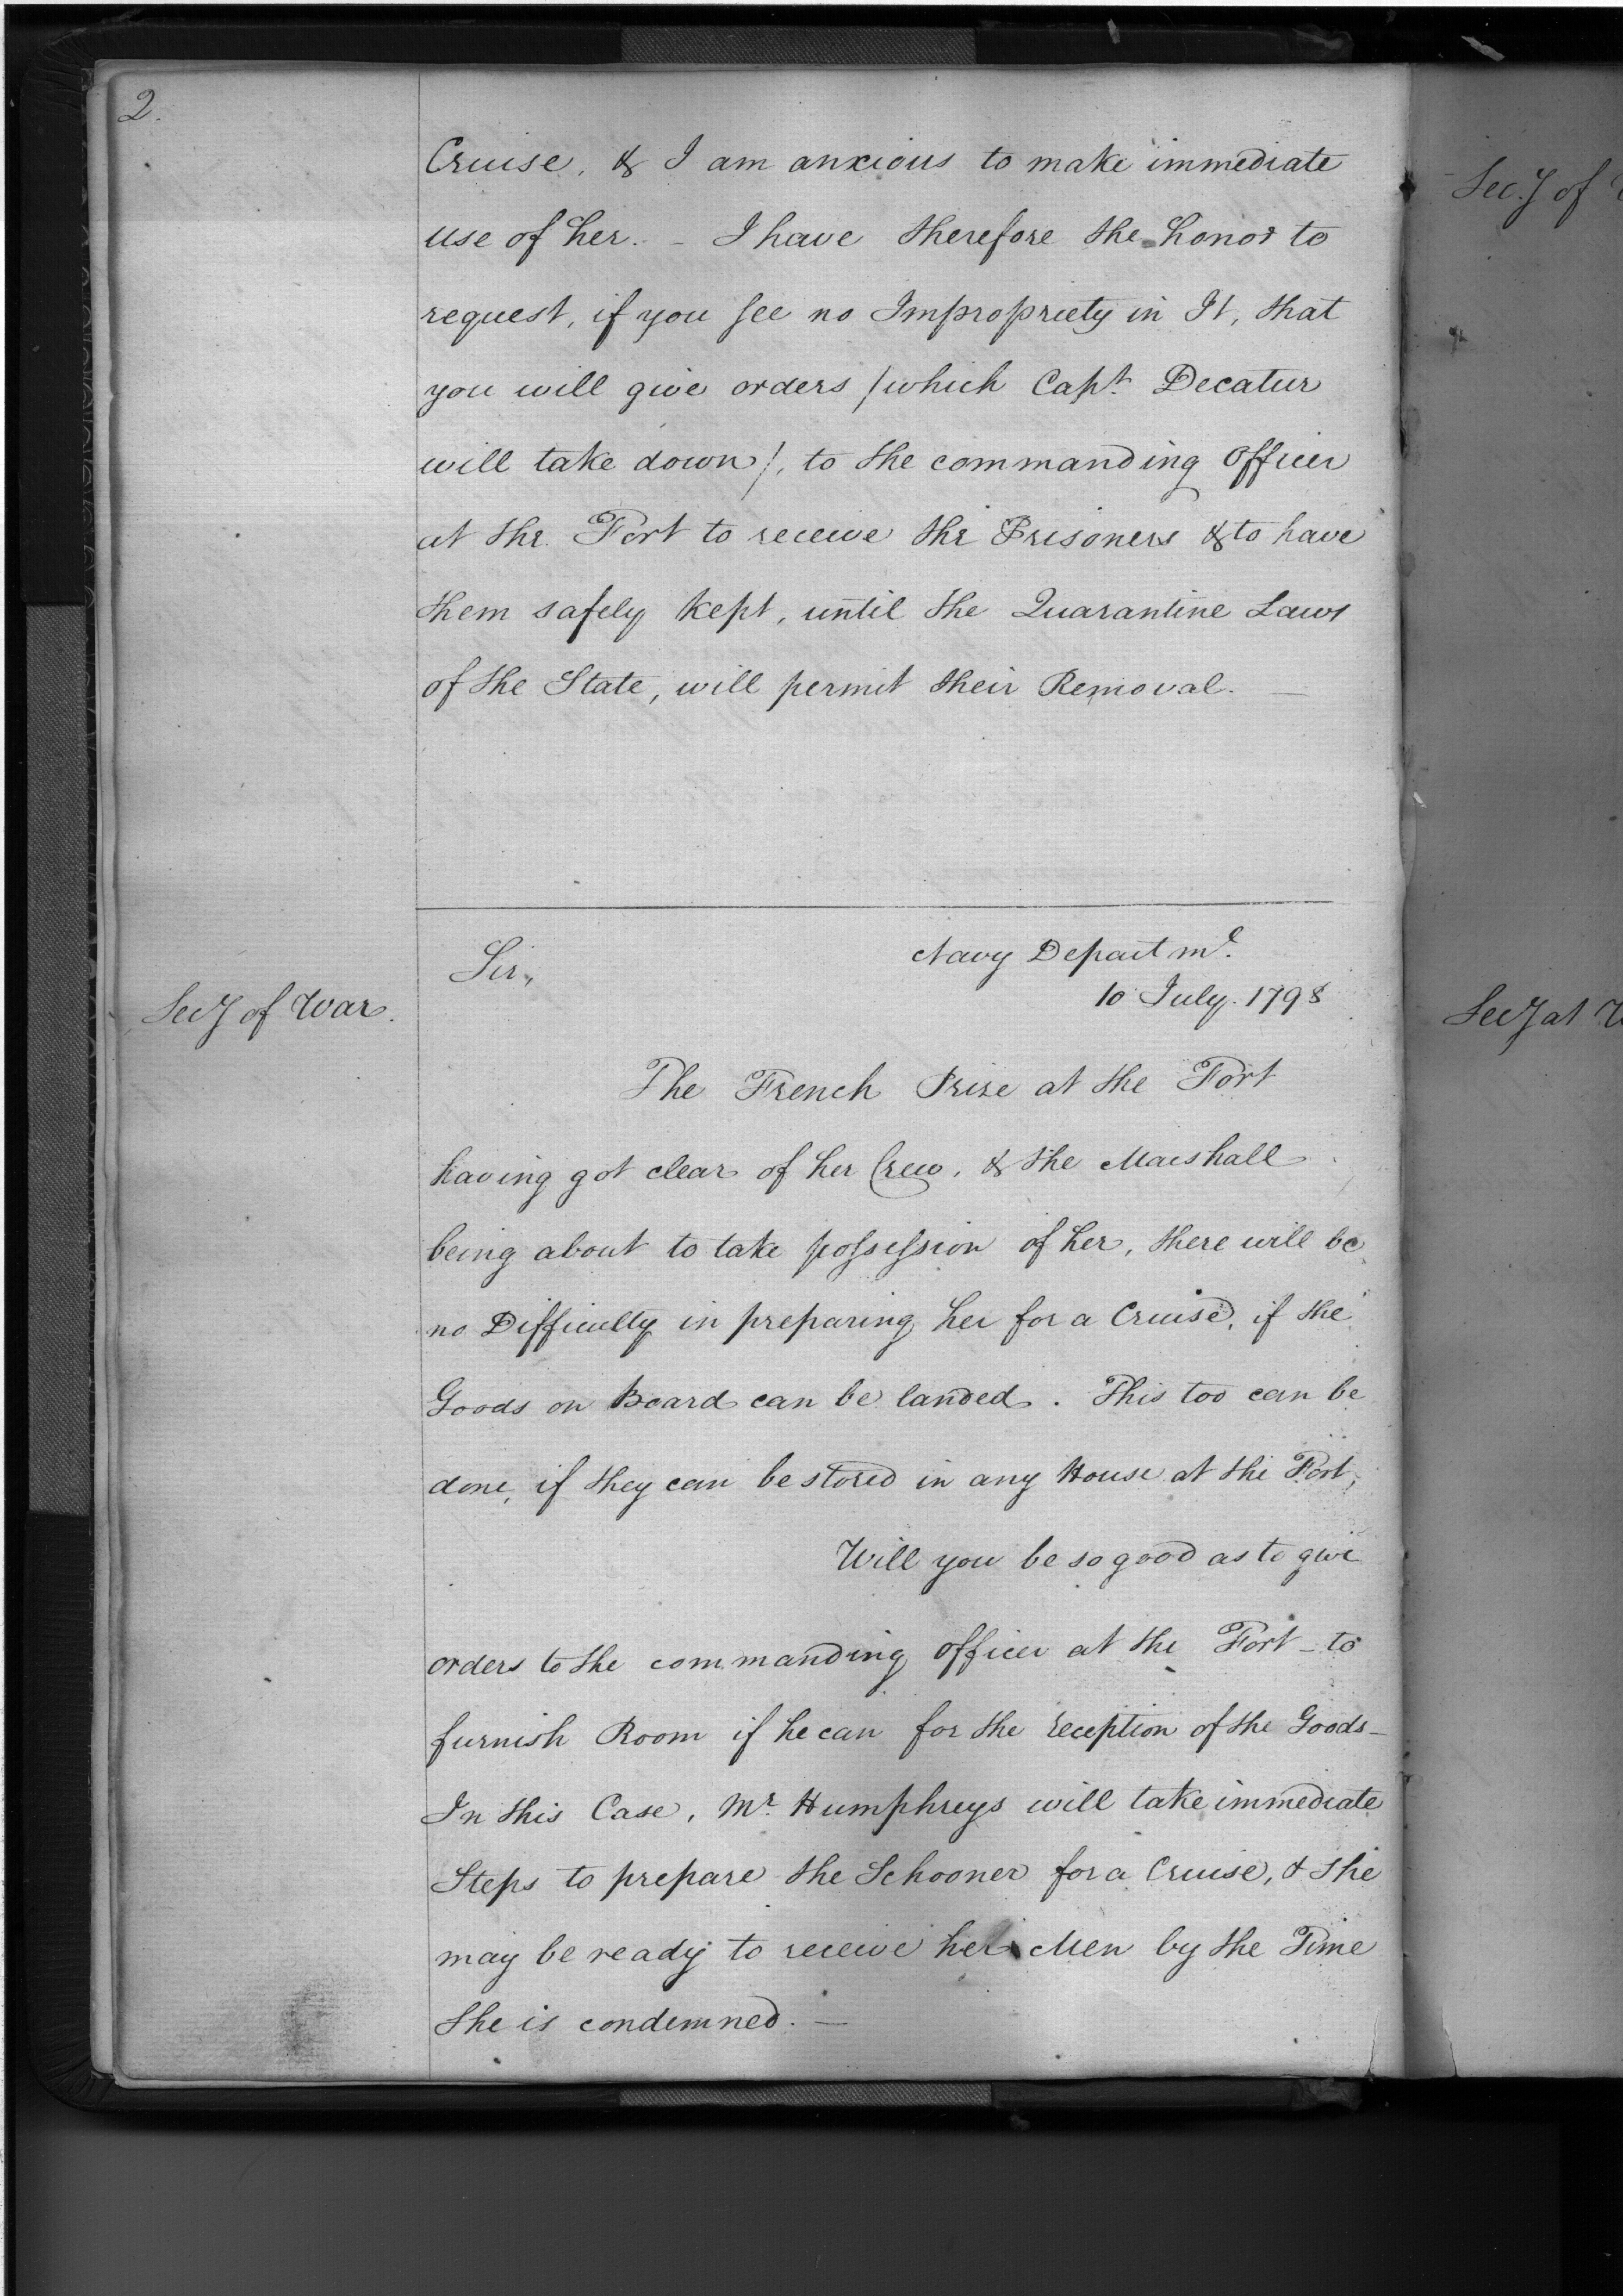 2.
Cruise, & I am anxious to make immediate
use of her. - I have therefore the honor to
request, if you see no Impropriety in It, that
you will give orders /which Capt. Decatur
will take down/, to the commanding Officer
at the Fort to receive the Prisoners & to have
them safely kept, until the Quarantine Laws
of the State, will permit their Removal. —
Sir,
Navy Departmt.
10 July. 1798
Secy of War.
The French Prize at the Fort
having got clear of her Crew, & the Marshall
being about to take possession of her, there will be
no Difficulty in preparing her for a Cruise, if the
Goods on Board can be landed. This too can be
done, if they can be stored in any House at the Fort,
Will you be so good as to give
orders to the commanding officer at the Fort - to
furnish Room if he can for the reception of the Goods -
In this Case, Mr. Humphreys will take immediate
Steps to prepare the Schooner for a Cruise, & She
may be ready to receive her Men by the Time
She is condemned. —
Secy of
Secy at